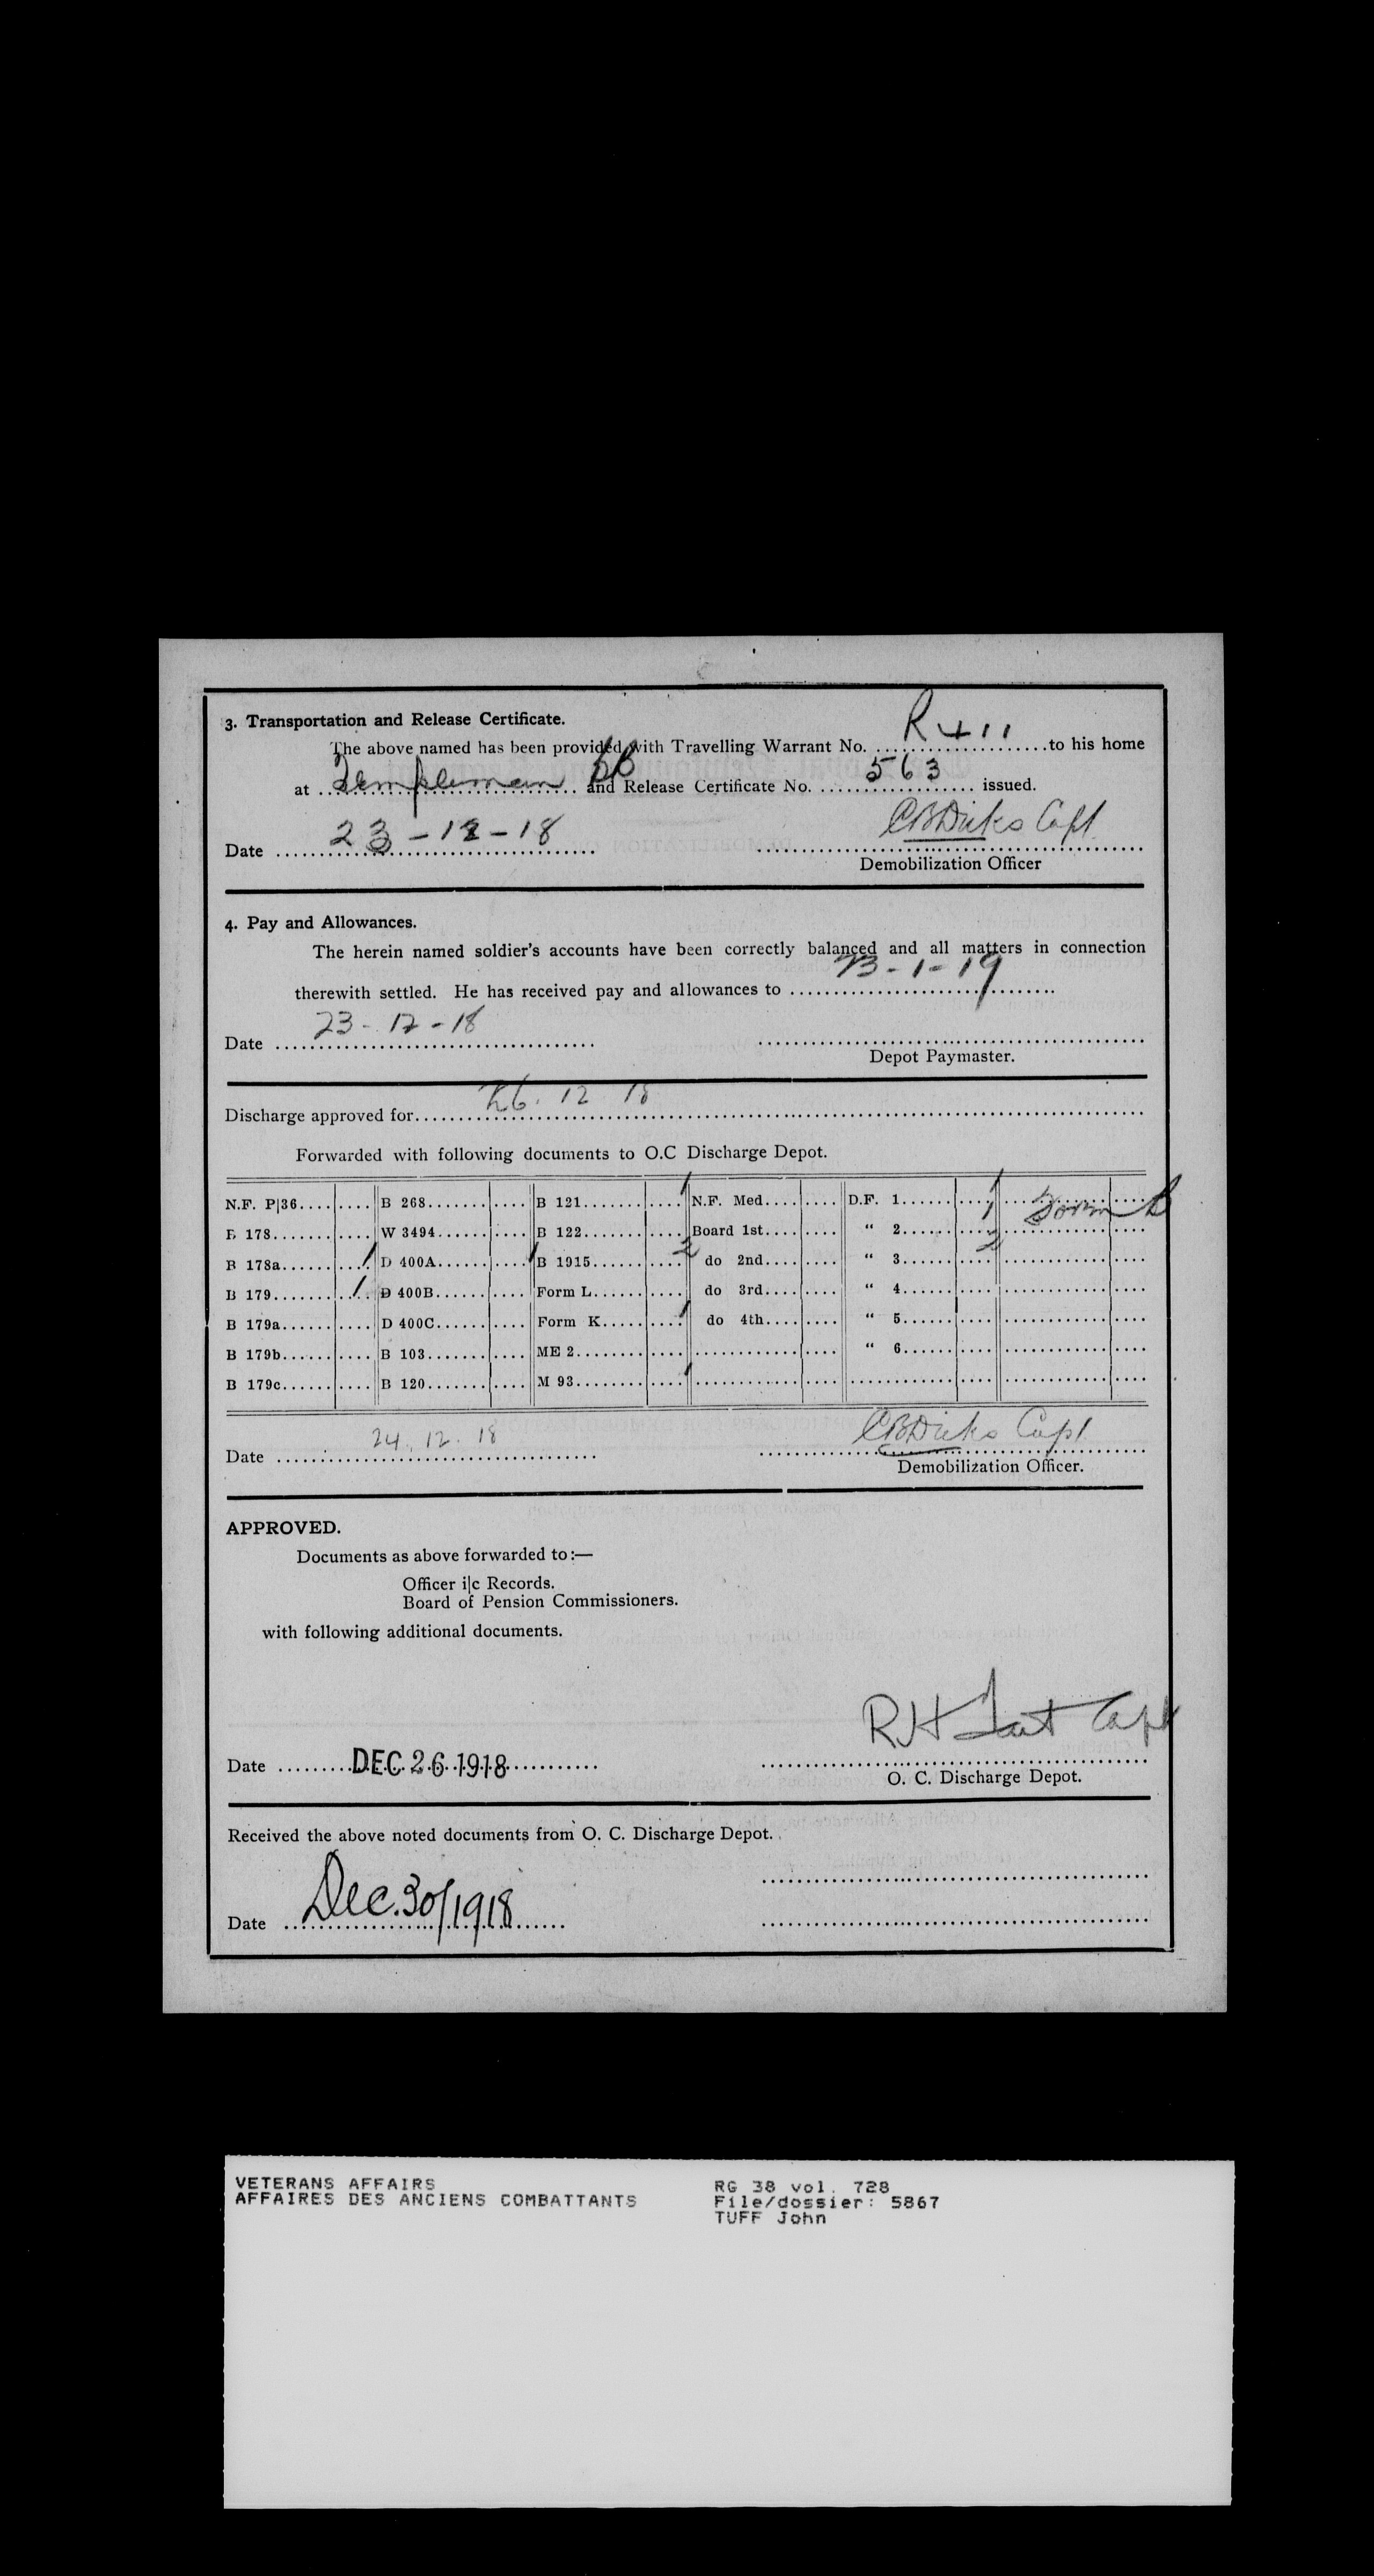 3. Transportation and Release Certificate.
The above named has been provided with Travelling Warrant No. R411 to his home
at Templeman BB and Release Certificate No. 563 issued.
CB Dicks Capt
Date 23-12-18
Demobilization Officer
4. Pay and Allowances.
The herein named soldier's accounts have been correctly balanced and all matters in connection
therewith settled. He has received pay and allowances to 23-1-19
Date 23-12-18
Depot Paymaster.
Discharge approved for 26.12 18
Forwarded with following documents to O.C Discharge Depot.
N.F. P|36 B 268 B 121 1 N.F. Med D.F. 1 1 Form B
B 178 W 3494 B 122 Board 1st " 2 1
B 178a 1 D 400A 1 B 1915 2 do 2nd " 3 2
B 179 1 D 400B Form L do 3rd " 4
B 179a D 400C Form K 1 do 4th " 5
B 179b B 103 ME 2 " 6
B 179c B 120 M 93 1
Date 24.12.18 CB Dicks Capt
Demobilization Officer.
APPROVED.
Documents as above forwarded to:—
Officer i|c Records.
Board of Pension Commissioners.
with following additional documents.
RH Tait Capt
Date DEC 26 1918
O. C. Discharge Depot.
Received the above noted documents from O. C. Discharge Depot.
Date Dec.30/1918
VETERANS AFFAIRS
AFFAIRES DES ANCIENS COMBATTANTS
RG 38 vol. 728
File/dossier: 5867
TUFF John